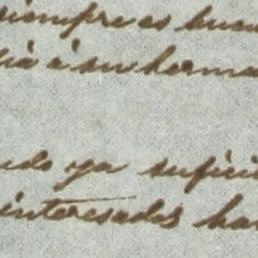 siempre es buen
a su herma
ya sufici
interesados ha